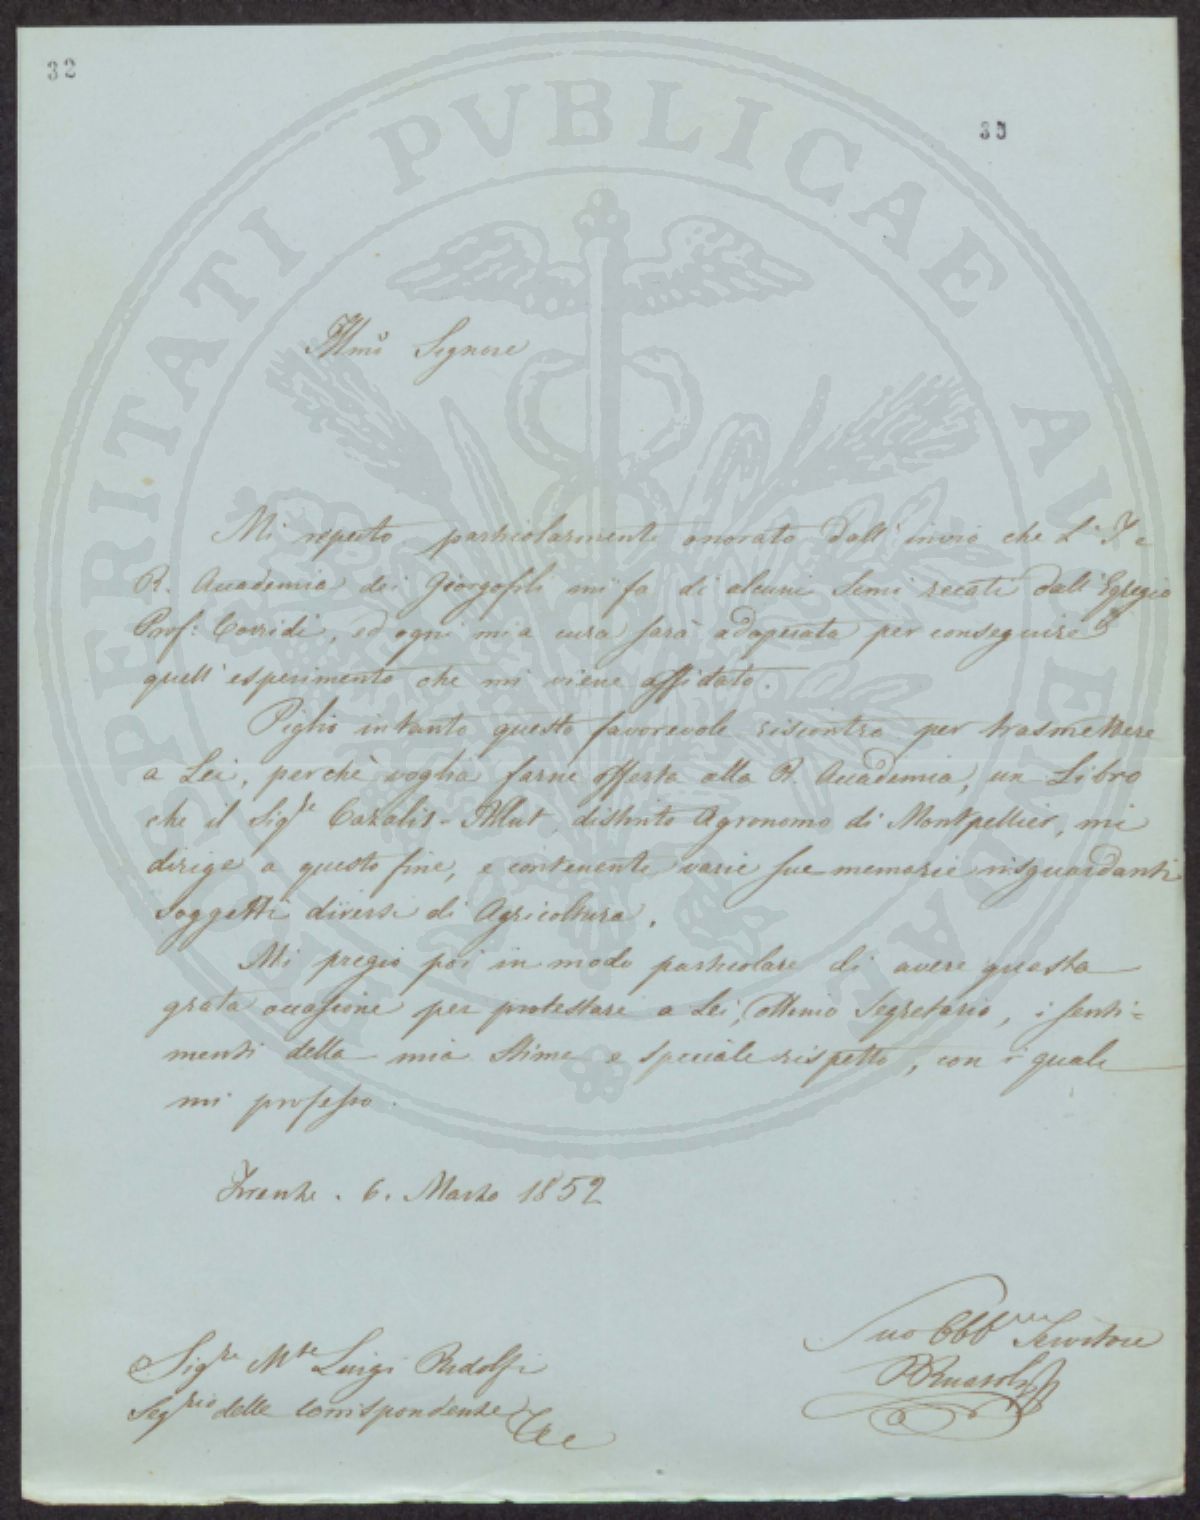 32
30
PROSPERITATI PVBLICAE AVGENDAE
Illmo Signore
Mi reputo particolarmente onorato dall' invio che L' I. e
R. Accademia dei Georgofili mi fa di alcuni Semi recati dall' Egregio
Prof: Corridi, ed ogni mia cura sarà adoperata per conseguire
quell' esperimento che mi viene affidato.
Piglio intanto questo favorevole riscontro per trasmettere
a Lei, perchè voglia farne offerta alla R. Accademia, un Libro
che il Sigre Cazalis-Allut, distinto Agronomo di Montpellier, mi
dirige a questo fine, e contenente varie sue memorie risguardanti
soggetti diversi di Agricoltura.
Mi pregio poi in modo particolare di avere questa
grata occasione per protestare a Lei, ottimo Segretario, i senti=
menti della mia stima e speciale rispetto, con i quali
mi professo.
Firenze. 6. Marzo 1852
Suo Obbmo Servitore
Sigre Mse Luigi Ridolfi
Segrio delle Corrispondenze